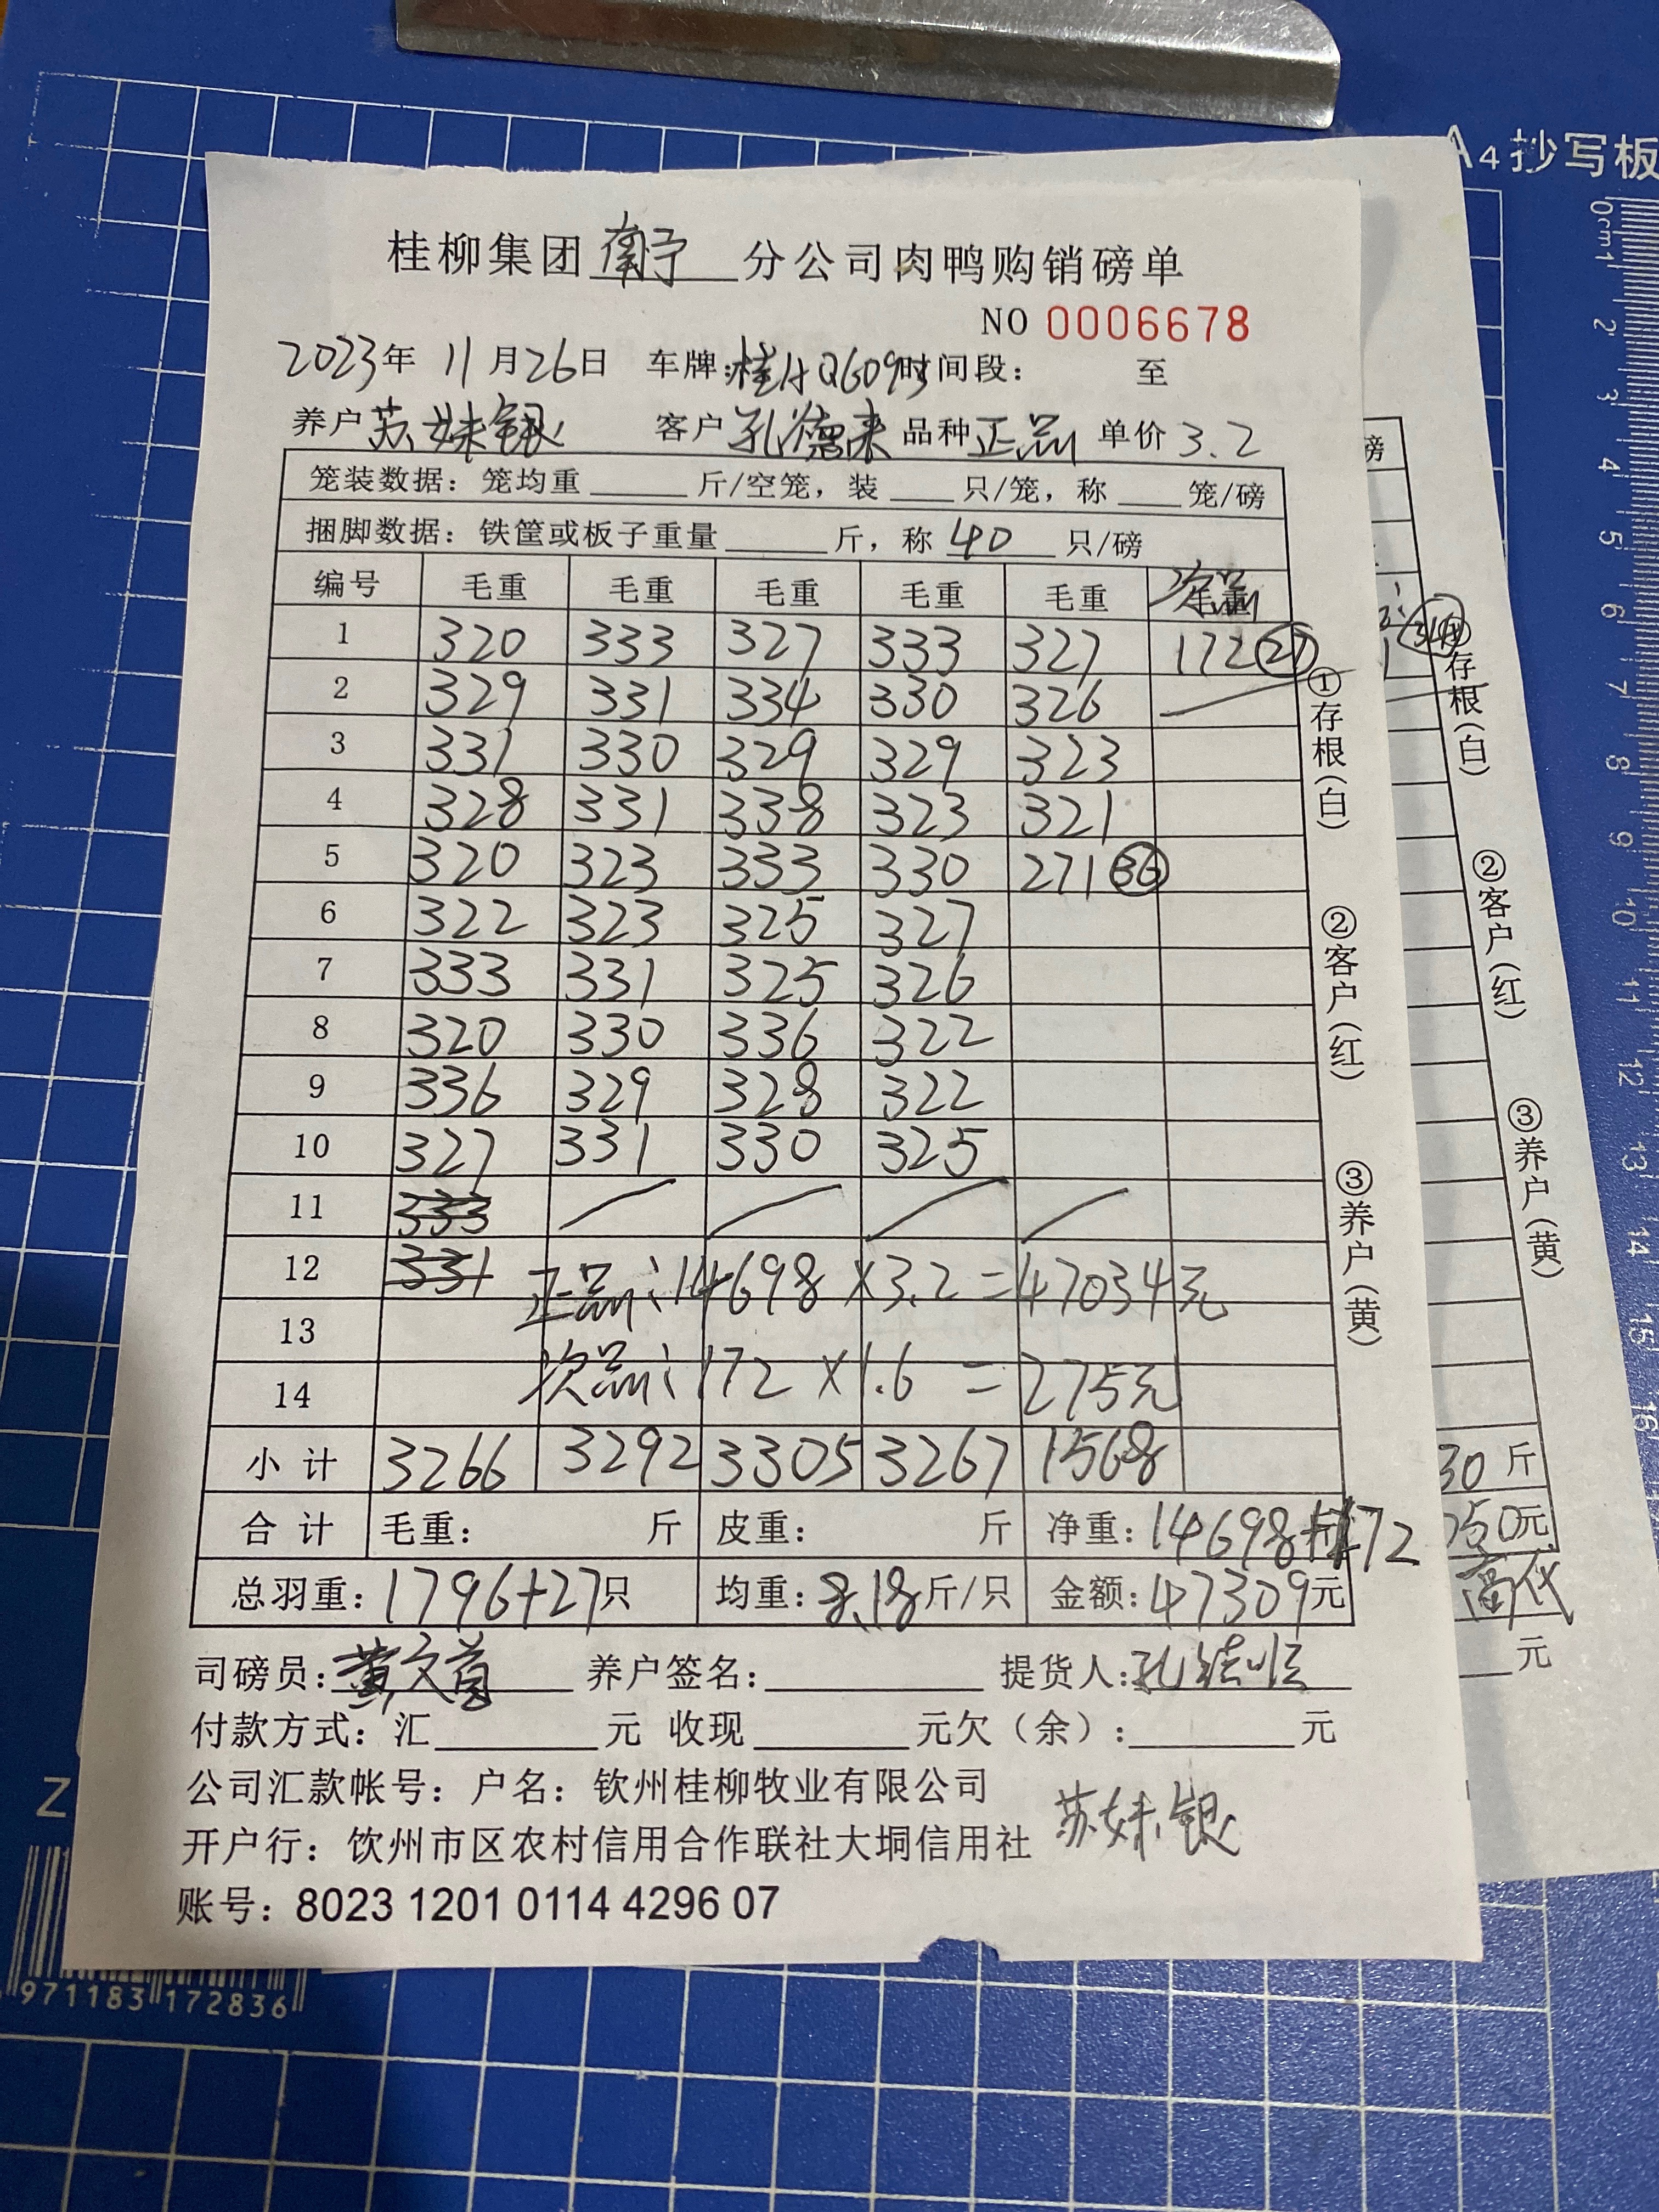 A4抄写板
桂柳集团 南宁 分公司肉鸭购销磅单
NO 0006678
2023年 11月26日 车牌:桂A Q6093 时间段: 至
养户 苏妹银 客户 孔德来 品种 正品 单价 3.2
笼装数据: 笼均重 斤/空笼, 装 只/笼, 称 笼/磅
捆脚数据: 铁筐或板子重量 斤, 称 40 只/磅
编号 毛重 毛重 毛重 毛重 毛重 次品
1 320 333 327 333 327 172 27
2 329 331 334 330 326
3 331 330 329 329 323
4 328 331 338 323 321
5 320 323 333 330 271 36
6 322 323 325 327
7 333 331 325 326
8 320 330 336 322
9 336 329 328 322
10 327 331 330 325
11 333
12 331 正品:14698×3.2=47034元
13
14 次品:172×1.6=275元
小计 3266 3292 3305 3267 1568
合计 毛重: 斤 皮重: 斤 净重:14698+172
总羽重:1796+27只 均重:8.18斤/只 金额:47309元
司磅员: 养户签名: 提货人:
付款方式: 汇 元 收现 元欠(余): 元
公司汇款帐号: 户名: 钦州桂柳牧业有限公司
苏妹银
开户行: 钦州市区农村信用合作联社大垌信用社
账号: 8023 1201 0114 4296 07
①存根(白) ②客户(红) ③养户(黄)
磅
存根(白) ②客户(红) ③养户(黄)
30 斤
050元
元
0cm1 2 3 4 5 6 7 8 9 10 11 12 13 14 15 16
Z
971183 172836